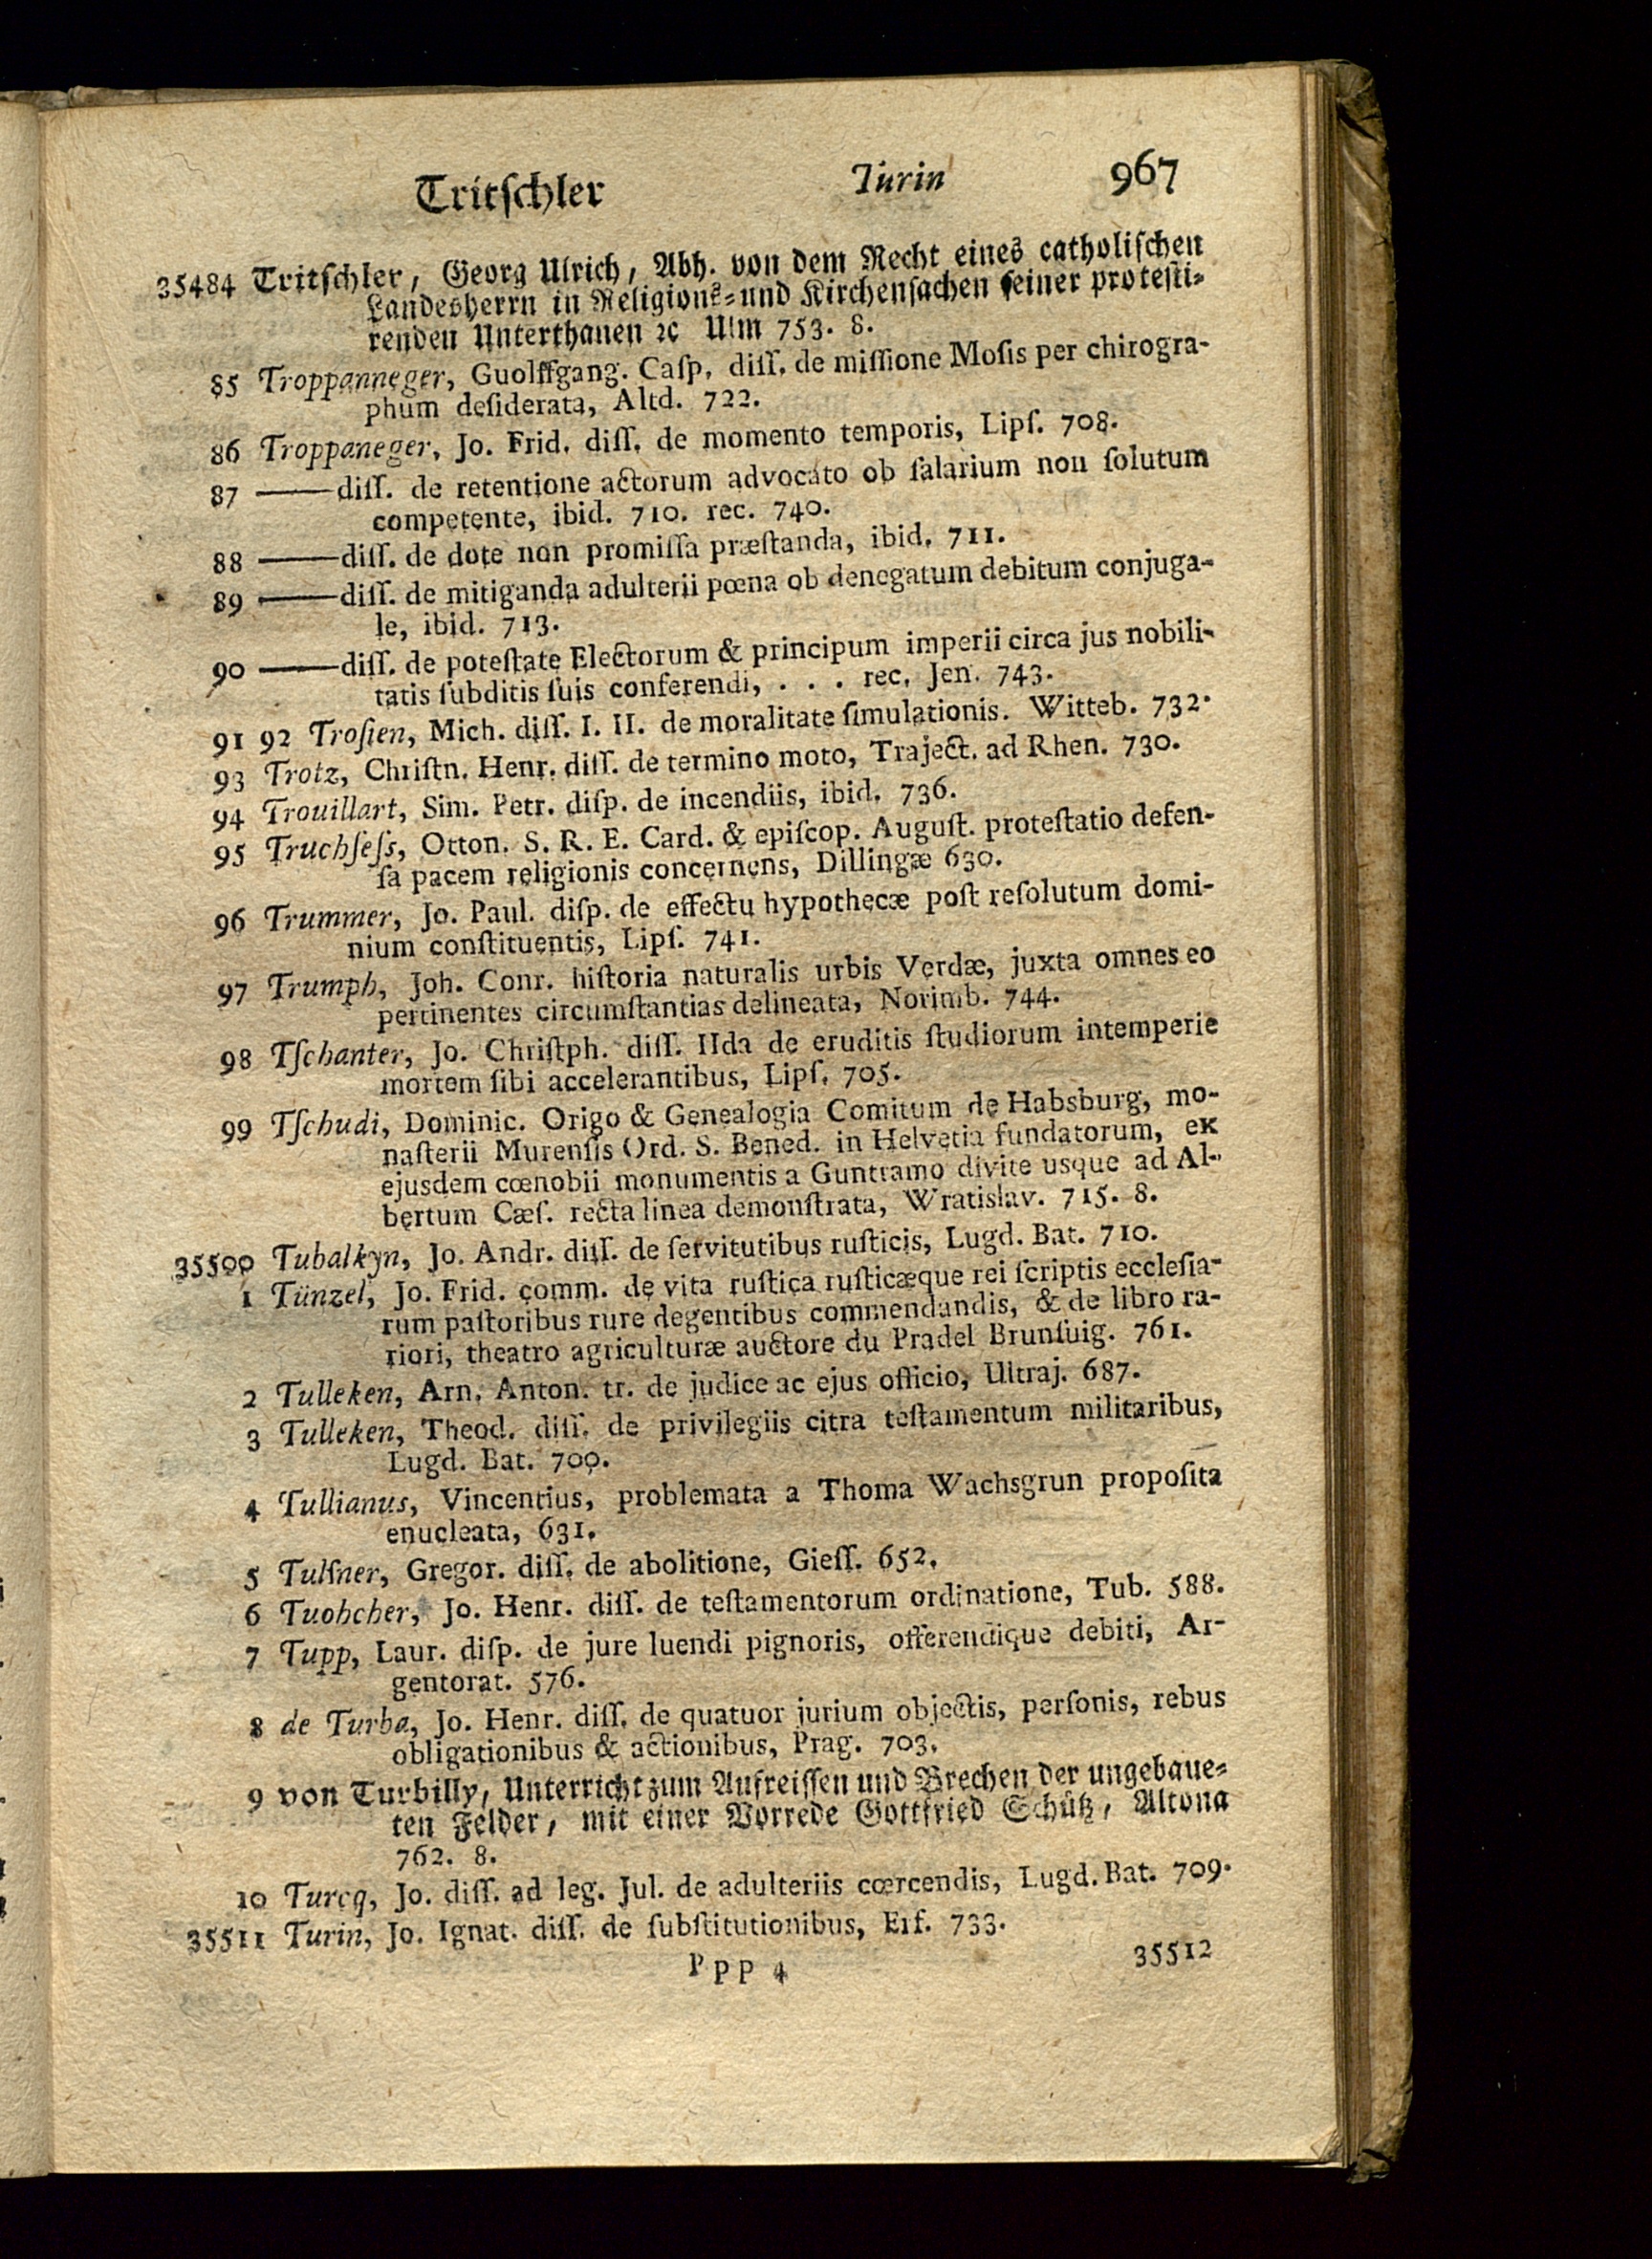 Tritſchler Turin 967
35484 Tritſchler, Georg Ulrich, Abh. von dem Recht eines catholiſchen
Landesherrn in Religions-und Kirchenſachen ſeiner proteſti-
renden Unterthanen ꝛc Ulm 753. 8.
85 Troppanneger, Guolffgang. Caſp. diſſ. de miſſione Moſis per chirogra-
phum deſiderata, Altd. 722.
86 Troppaneger, Jo. Frid. diſſ. de momento temporis, Lipſ. 708.
87 —— diſſ. de retentione actorum advocato ob ſalarium non ſolutum
competente, ibid. 710. rec. 740.
88 —— diſſ. de dote non promiſſa præſtanda, ibid. 711.
89 —— diſſ. de mitiganda adulterii pœna ob denegatum debitum conjuga-
le, ibid. 713.
90 —— diſſ. de poteſtate Electorum & principum imperii circa jus nobili-
tatis ſubditis ſuis conferendi, . . . rec. Jen. 743.
91 92 Troſien, Mich. diſſ. I. II. de moralitate ſimulationis. Witteb. 732.
93 Trotz, Chriſtn. Henr. diſſ. de termino moto, Traject. ad Rhen. 730.
94 Trouillart, Sim. Petr. diſp. de incendiis, ibid. 736.
95 Truchſeſs, Otton. S. R. E. Card. & epiſcop. Auguſt. proteſtatio defen-
ſa pacem religionis concernens, Dillingæ 630.
96 Trummer, Jo. Paul. diſp. de effectu hypothecæ poſt reſolutum domi-
nium conſtituentis, Lipſ. 741.
97 Trumph, Joh. Conr. hiſtoria naturalis urbis Verdæ, juxta omnes eo
pertinentes circumſtantias delineata, Norimb. 744.
98 Tſchanter, Jo. Chriſtph. diſſ. IIda de eruditis ſtudiorum intemperie
mortem ſibi accelerantibus, Lipſ. 705.
99 Tſchudi, Dominic. Origo & Genealogia Comitum de Habsburg, mo-
naſterii Murenſis Ord. S. Bened. in Helvetia fundatorum, ex
ejusdem cœnobii monumentis a Guntramo divite usque ad Al-
bertum Cæſ. recta linea demonſtrata, Wratislav. 715. 8.
35500 Tubalkyn, Jo. Andr. diſſ. de ſervitutibus ruſticis, Lugd. Bat. 710.
1 Tünzel, Jo. Frid. comm. de vita ruſtica ruſticæque rei ſcriptis eccleſia-
rum paſtoribus rure degentibus commendandis, & de libro ra-
riori, theatro agriculturæ auctore du Pradel Brunſuig. 761.
2 Tulleken, Arn. Anton. tr. de judice ac ejus officio, Ultraj. 687.
3 Tulleken, Theod. diſſ. de privilegiis citra teſtamentum militaribus,
Lugd. Bat. 700.
4 Tullianus, Vincentius, problemata a Thoma Wachsgrun propoſita
enucleata, 631.
5 Tulſner, Gregor. diſſ. de abolitione, Gieſſ. 652.
6 Tuohcher, Jo. Henr. diſſ. de teſtamentorum ordinatione, Tub. 588.
7 Tupp, Laur. diſp. de jure luendi pignoris, offerendique debiti, Ar-
gentorat. 576.
8 de Turba, Jo. Henr. diſſ. de quatuor jurium objectis, perſonis, rebus
obligationibus & actionibus, Prag. 703.
9 von Turbilly, Unterricht zum Aufreiſſen und Brechen der ungebaue-
ten Felder, mit einer Vorrede Gottfried Schütz, Altona
762. 8.
10 Turcq, Jo. diſſ. ad leg. Jul. de adulteriis cœrcendis, Lugd. Bat. 709.
35511 Turin, Jo. Ignat. diſſ. de ſubſtitutionibus, Erf. 733.
Ppp 4 35512